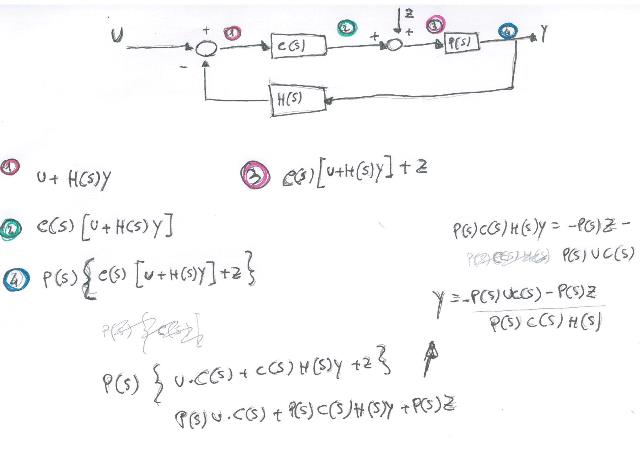 Z
U + ① C(s) ② + + ③ P(s) ④ Y
-
H(s)
① U + H(s)Y
③ C(s)[U+H(s)Y] + Z
② C(s) [U + H(s)Y]
P(s)C(s)H(s)Y = -P(s)Z -
P(s)UC(s)
④ P(s) { C(s) [U + H(s)Y] + Z }
Y = -P(s)UC(s) - P(s)Z
P(s)C(s)H(s)
P(s) { U·C(s) + C(s)H(s)Y + Z }
P(s)U·C(s) + P(s)C(s)H(s)Y + P(s)Z